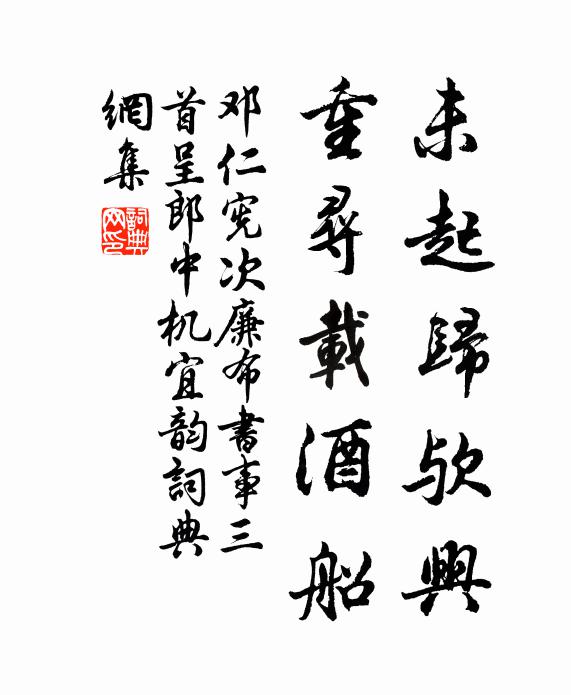 未起歸欤興
重尋載酒船
邓仁宪次廉布書事三
首呈郎中机宜韵詞典
網集
詞典
网印